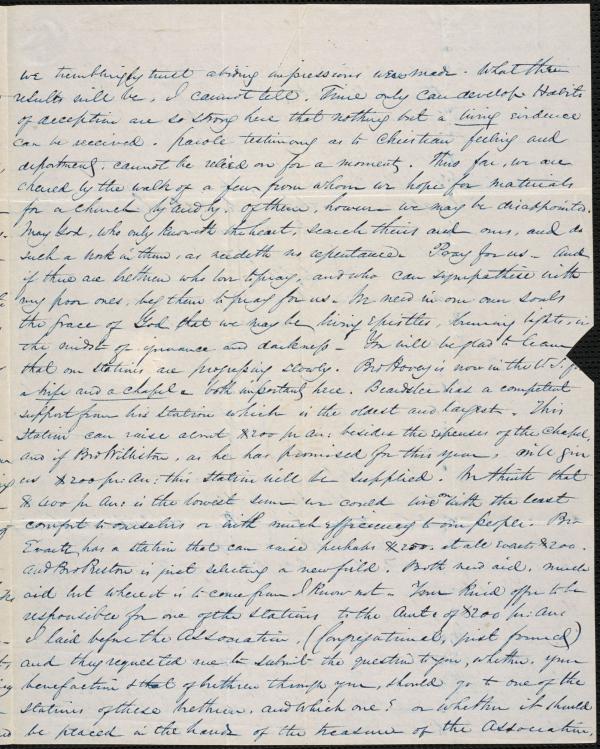 we tremblingly trust abiding impressions were made. What the
results will be, I cannot tell. Time only can develope. Habits
of deception are so strong here that nothing but a living evidence
can be received. parole testimony as to Christian feeling and
deportment, cannot be relied on for a moment. Thus far, we are
cheered by the walk of a few, from whom we hope for materials
for a church by and by. of them, however we may be disappointed.
May God, who only knoweth the heart, search theirs and ours, and do
such a work in them, as needeth no repentance. Pray for us - And
if there are brethren who love to pray, and who can sympathise with
my poor ones, beg them to pray for us. We need in our own souls
the grace of God that we may be living epistles, burning lights, in
the midst of ignorance and darkness - You will be glad to learn
that our stations are progressing slowly. Bro Hovey is now in the U.S. for
a wife and a chapel - both important here. Beardslee has a competent
support from his station which is the oldest and largest. This
station can raise about $200 pr. An: besides the expenses of the Chapel,
and if Bro Williston, as he has promised for this year, will give
us $200 pr. An: this station will be supplied. We think that
$400 pr An: is the lowest sum we could live on with the least
comfort to ourselves or with much efficiency to our people. Bro
Evarts has a station that can raise perhaps $200. at all events $200.
And Bro Preston is just selecting a new field. Both need aid, much
aid but where it is to come from I know not - Your kind offer to be
responsible for one of the stations to the Amt: of $200 pr: An:
I laid before the Association, (Congregational, just formed)
and they requested me to submit the question to you, whether, your
benefaction & that of brethren through you, should go to one of the
stations of these brethren, and which one? or whether it should
be placed in the hands of the treasurer of the Association,